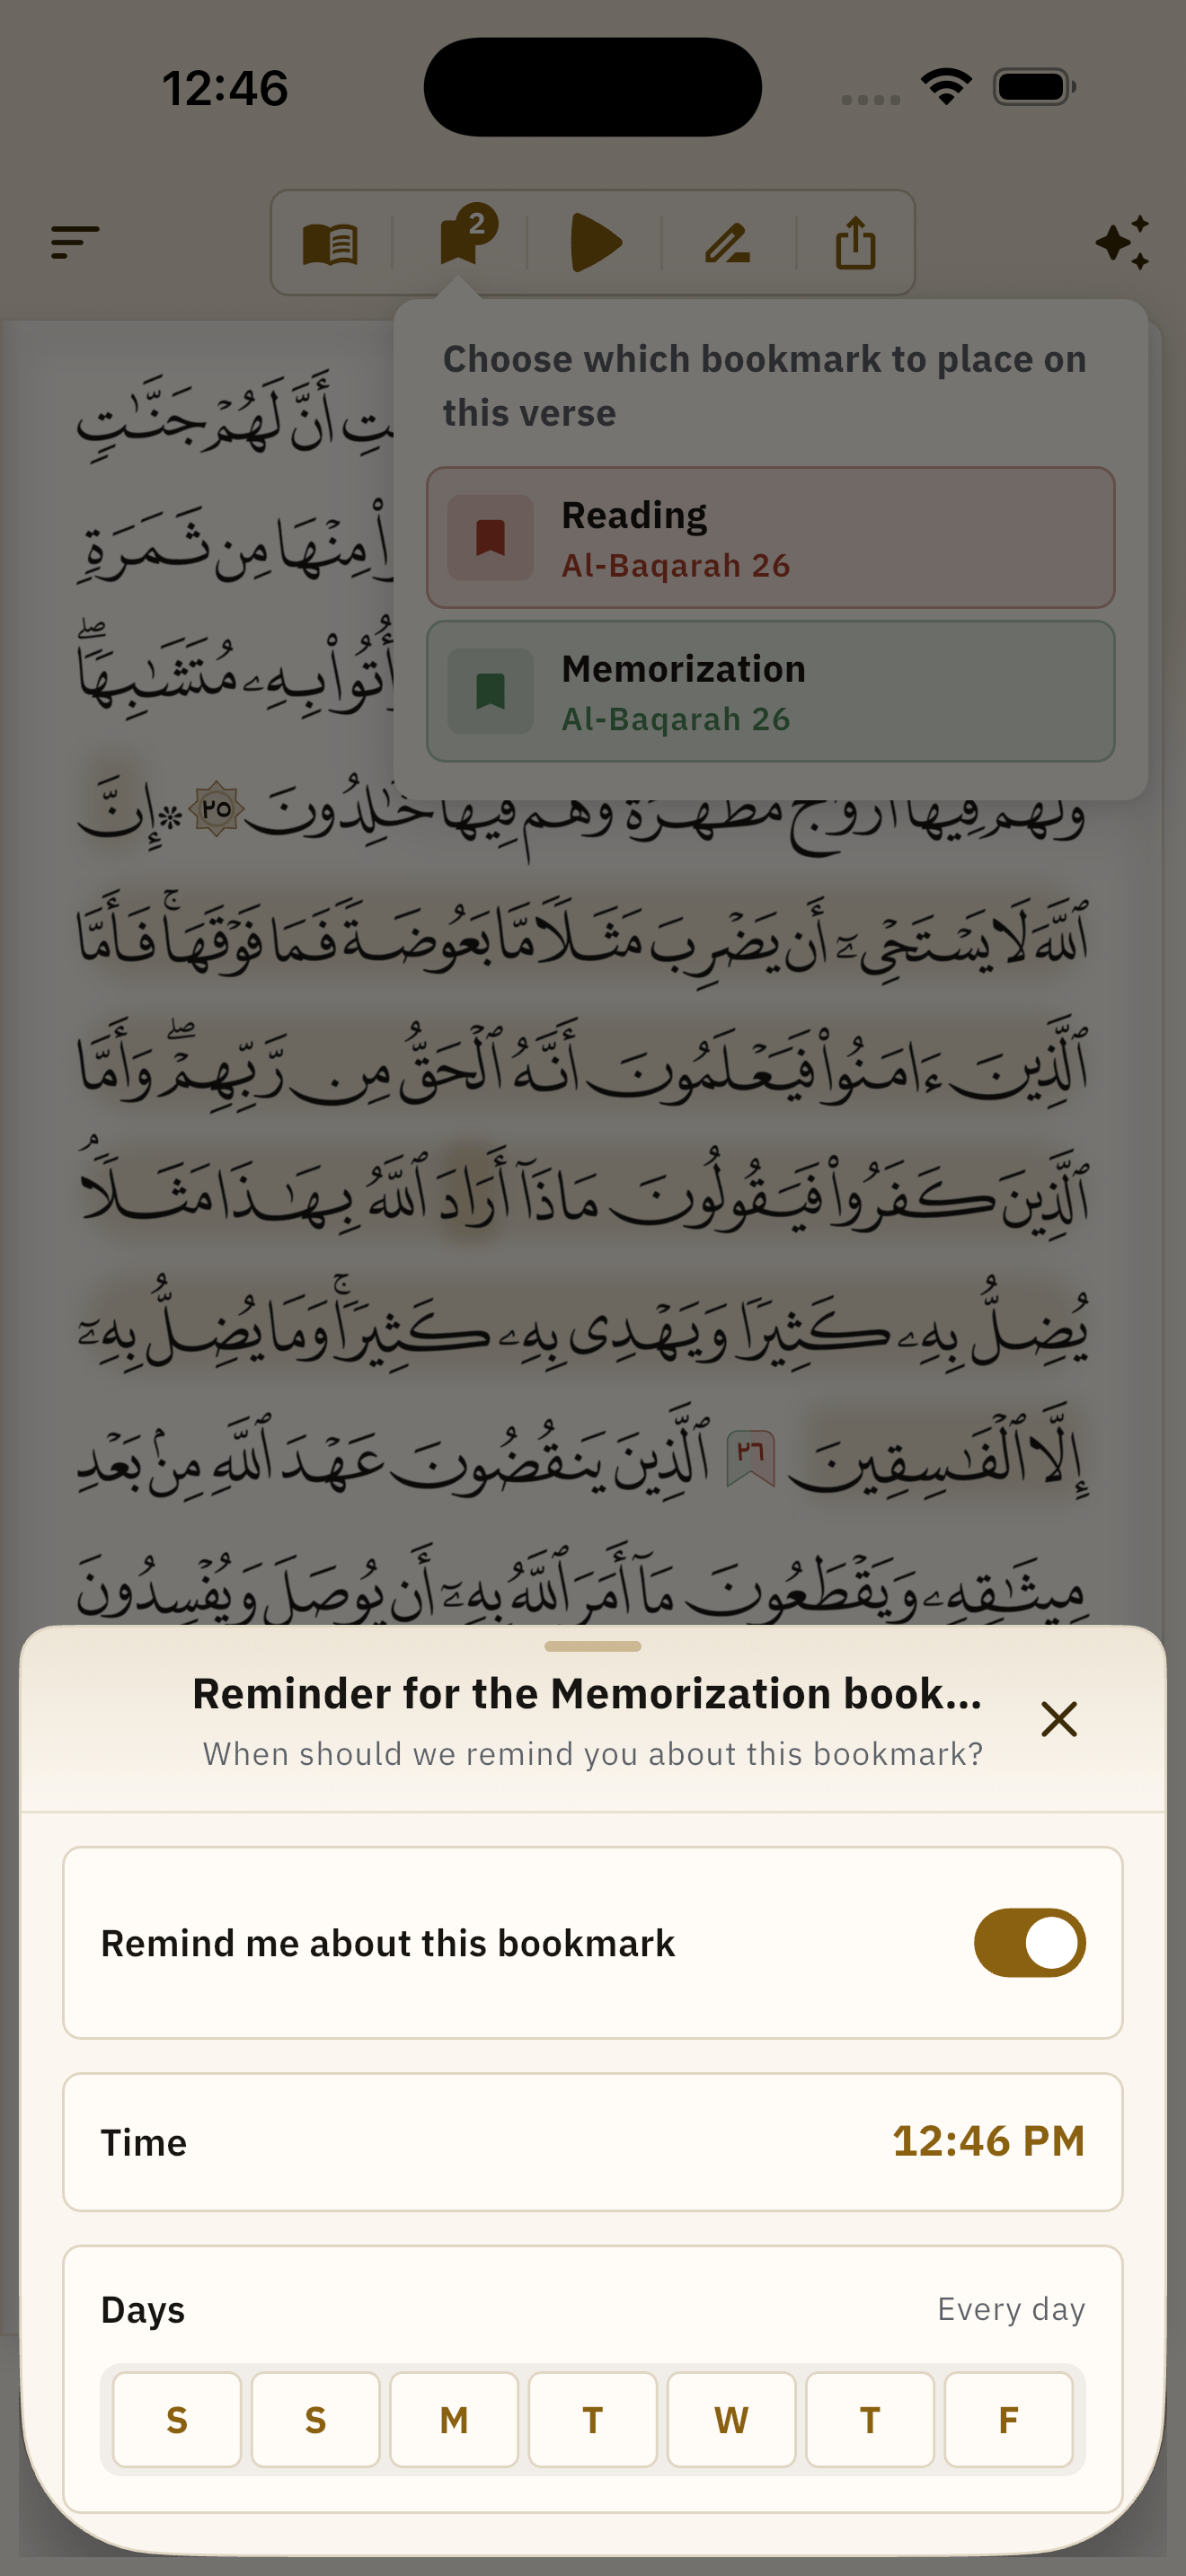 12:46
2
Choose which bookmark to place on
this verse
Reading
Al-Baqarah 26
Memorization
Al-Baqarah 26
أَنَّ لَهُمْ جَنَّٰتٍ
مِنْهَا مِن ثَمَرَةٍ
مُتَشَٰبِهًاۖ
وَلَهُمْ فِيهَآ أَزْوَٰجٌ مُّطَهَّرَةٌ وَهُمْ فِيهَا خَٰلِدُونَ ٢٥ ۞ إِنَّ
ٱللَّهَ لَا يَسْتَحْىِۦٓ أَن يَضْرِبَ مَثَلًا مَّا بَعُوضَةً فَمَا فَوْقَهَاۚ فَأَمَّا
ٱلَّذِينَ ءَامَنُوا۟ فَيَعْلَمُونَ أَنَّهُ ٱلْحَقُّ مِن رَّبِّهِمْۖ وَأَمَّا
ٱلَّذِينَ كَفَرُوا۟ فَيَقُولُونَ مَاذَآ أَرَادَ ٱللَّهُ بِهَٰذَا مَثَلًاۘ
يُضِلُّ بِهِۦ كَثِيرًا وَيَهْدِى بِهِۦ كَثِيرًاۚ وَمَا يُضِلُّ بِهِۦٓ
إِلَّا ٱلْفَٰسِقِينَ ٢٦ ٱلَّذِينَ يَنقُضُونَ عَهْدَ ٱللَّهِ مِنۢ بَعْدِ
مِيثَٰقِهِۦ وَيَقْطَعُونَ مَآ أَمَرَ ٱللَّهُ بِهِۦٓ أَن يُوصَلَ وَيُفْسِدُونَ
Reminder for the Memorization book...
When should we remind you about this bookmark?
Remind me about this bookmark
Time 12:46 PM
Days Every day
S S M T W T F